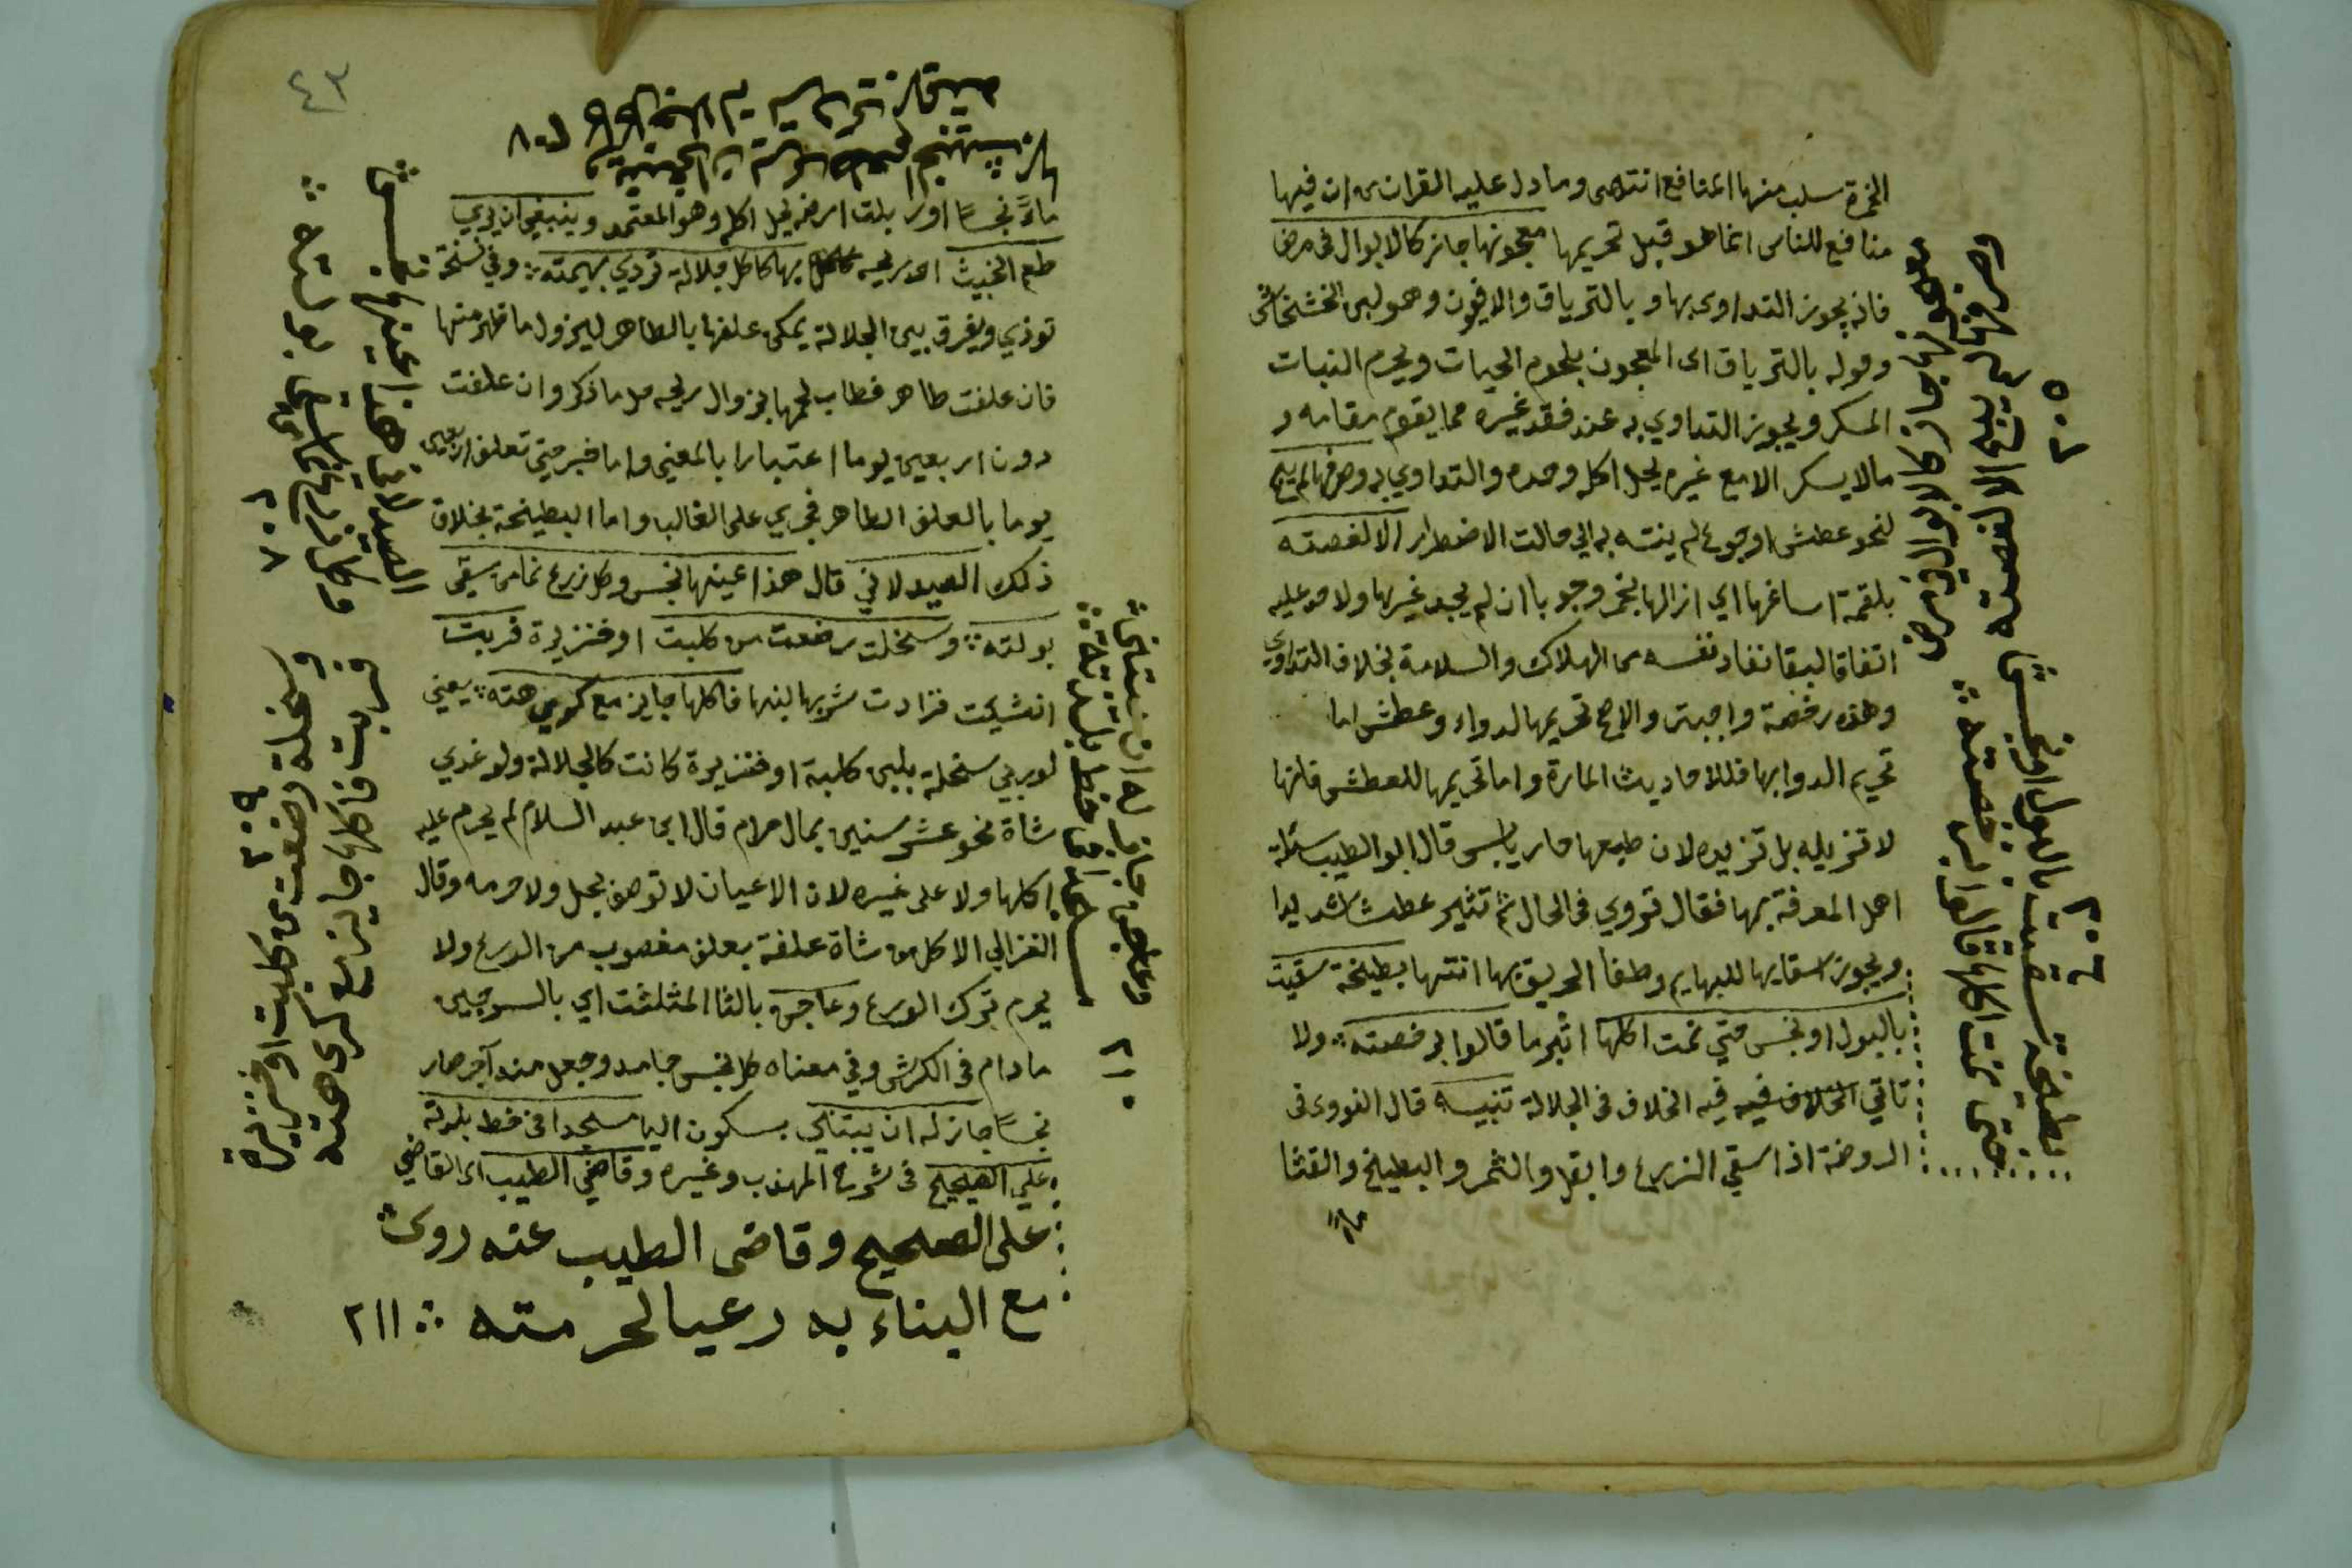 الخمرة سلب منها المنافع انتهى وما دل عليه القران من ان فيها
منافع للناس انما هو قبل تحريمها معجونها جاز كالابوال في مرض
فانه يجوز التداوى بها و بالترياق والافيون وهو لبن الخشخاش
وقوله بالترياق اى المعجون بلحوم الحيات ويحرم النبات
المسكر ويجوز التداوي به عند فقد غيره مما يقوم مقامه و
مالا يسكر الا مع غيره يحل اكله وحده والتداوي به وصرفها لم يبح
لنحو عطش او جوع لم ينته به الي حالت الاضطرار الا لغصته
بلقمة اساغها اي ازالها بخمر وجوبا ان لم يجد غيرها ولا حد عليه
اتفاقا لبقا نفاد نفسه من الهلاك والسلامة بخلاف التداوي
وهذه رخصة واجبت والاصح تحريمها لدواء وعطش اما
تحريم الدوا بها فللاحاديث المارة واما تحريمها للعطش فلانها
لا تزيله بل تزيده لان طبعها حار يابس قال ابو الطيب سئلت
اهل المعرفة بها فقال تروي في الحال ثم تثير عطشا شديدا
ويجوز اسقايها للبهايم وطفا الحريق بها انتها بطيخة سقيت
بالبول او نجس حتي نمت اكلها ابْر ما قالوا به خصته ولا
تاتي فيه الخلاف في الجلالة تنبيه قال النووى فى
الروضة اذا سقي الزرع وابقل والثمر والبطيخ والقثا
معجونها جاز كالابوال في مرض
وصرفها لم يبح الا لغصته
٢٠٥
بطيخة سقيت بالبول او نجس
حتى نمت اكلها قالوا به خصته
٢٠٦
٤٣
٢٠٨
ماءً نجسًا اور بلت ارضه يحل اكله وهو المعتمد وينبغي ان يردي
طعم الخبيث اى ريحه بها كاكل جلالة تردي بهيمته وفي نسخة
توذي ويفرق بين الجلالة يمكن علفها بالطاهر ليزول ما ظهر منها
فان علفت طاهر فطاب لحمها بزوال ريحه حل ما ذكر وان علفت
دون اربعين يوما اعتبارا بالمعني واما خبر حتي تعلف اربعين
يوما بالعلف الطاهر فجري على الغالب واما البطيخة بخلاف
ذلك الصيدلاني قال هذا عينها نجس وكل زرع نما من سقي
بولته وسخلت رضعت من كلبت او خنزيرة فربت
انشيت فزادت شربها لبنها فاكلها جايز مع كرهته يعني
لو ربي سخلة بلبن كلبة او خنزيرة كانت كالجلالة ولو غذي
شاة نحو عشر سنين بمال حرام قال ابن عبد السلام لم يحرم عليه
اكلها ولا على غيره لان الاعيان لا توصف بحل ولا حرمه وقال
الغزالي الاكل من شاة علفة بعلف مغصوب من الورع ولا
يحرم ترك الورع وعاجن بالثا المثلثت اي بالسرجين
مادام فى الكرش وفي معناه كل نجس جامد وجعل منه آجر صار
نجسًا جاز له ان يبتني بسكون اليا مسجدا في خط بلدته
علي الصحيح في شرح المهذب وغيره وقاضي الطيب اى القاضي
على الصحيح وقاضى الطيب عنه روى
مع البناء به رعيا لحرمته ٢١١
الصيدلاني هذا عينها نجس
وكل زرع نما من سقي بولته
٢٠٧
وسخلة رضعت من كلبت او خنزيرة
فربت فاكلها جايز مع كرهته
٢٠٩
وعاجن جاز له ان يبتني
مسجدا في خط بلدته
٢١٠